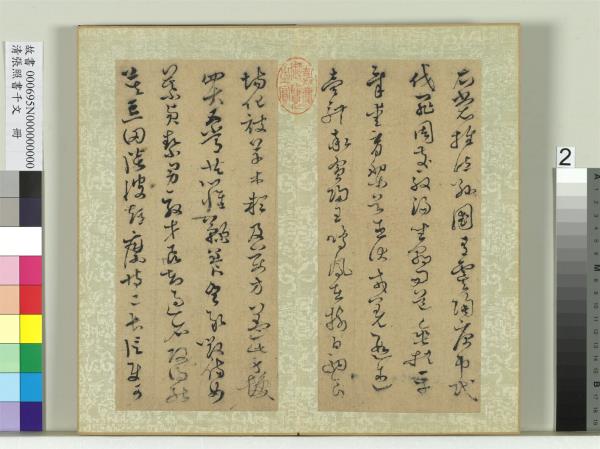 故書 000695N000000000
清張照書千文 冊
2
衣裳推位讓國有虞陶唐弔民
伐罪周發殷湯坐朝問道垂拱平
章愛育黎首臣伏戎羌遐邇
壹體率賓歸王鳴鳳在樹白駒食
場化被草木賴及萬方蓋此身髮
四大五常恭惟鞠養豈敢毀傷女
慕貞絜男效才良知過必改得能
莫忘罔談彼短靡恃己長信使可